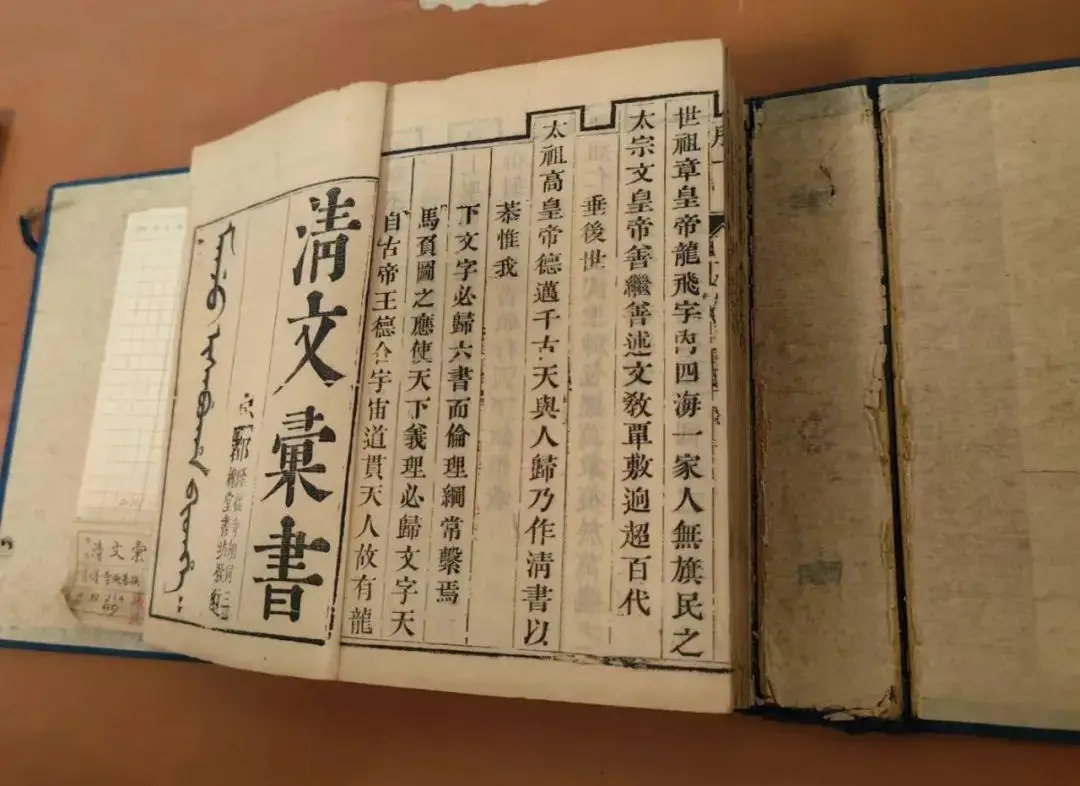 ᠮᠠᠨᠵᡠ ᡳᠰᠠᠪᡠᡥᠠ ᠪᡳᡨᡥᡝ
堂書坊發
清文彙書
自古帝王德合宇宙道貫天人故有龍
馬負圖之應使天下義理必歸文字天
下文字必歸六書而倫理綱常繫焉
恭惟我
太祖高皇帝德邁千古天與人歸乃作淸書以
垂後世
太宗文皇帝善繼善述文敎單敷逈超百代
世祖章皇帝龍飛宇內四海一家人無旗民之
序一
清文彙
214